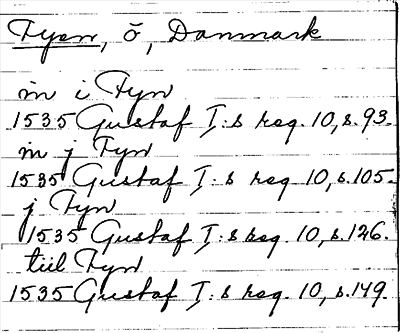 Fyen, ö, Danmark
in i Fyn
1535 Gustaf I:s reg. 10, s. 93.
in j Fyn
1535 Gustaf I:s reg. 10, s. 105.
j Fyn
1535 Gustaf I:s reg. 10, s. 126.
tiil Fyn
1535 Gustaf I:s reg. 10, s. 149.